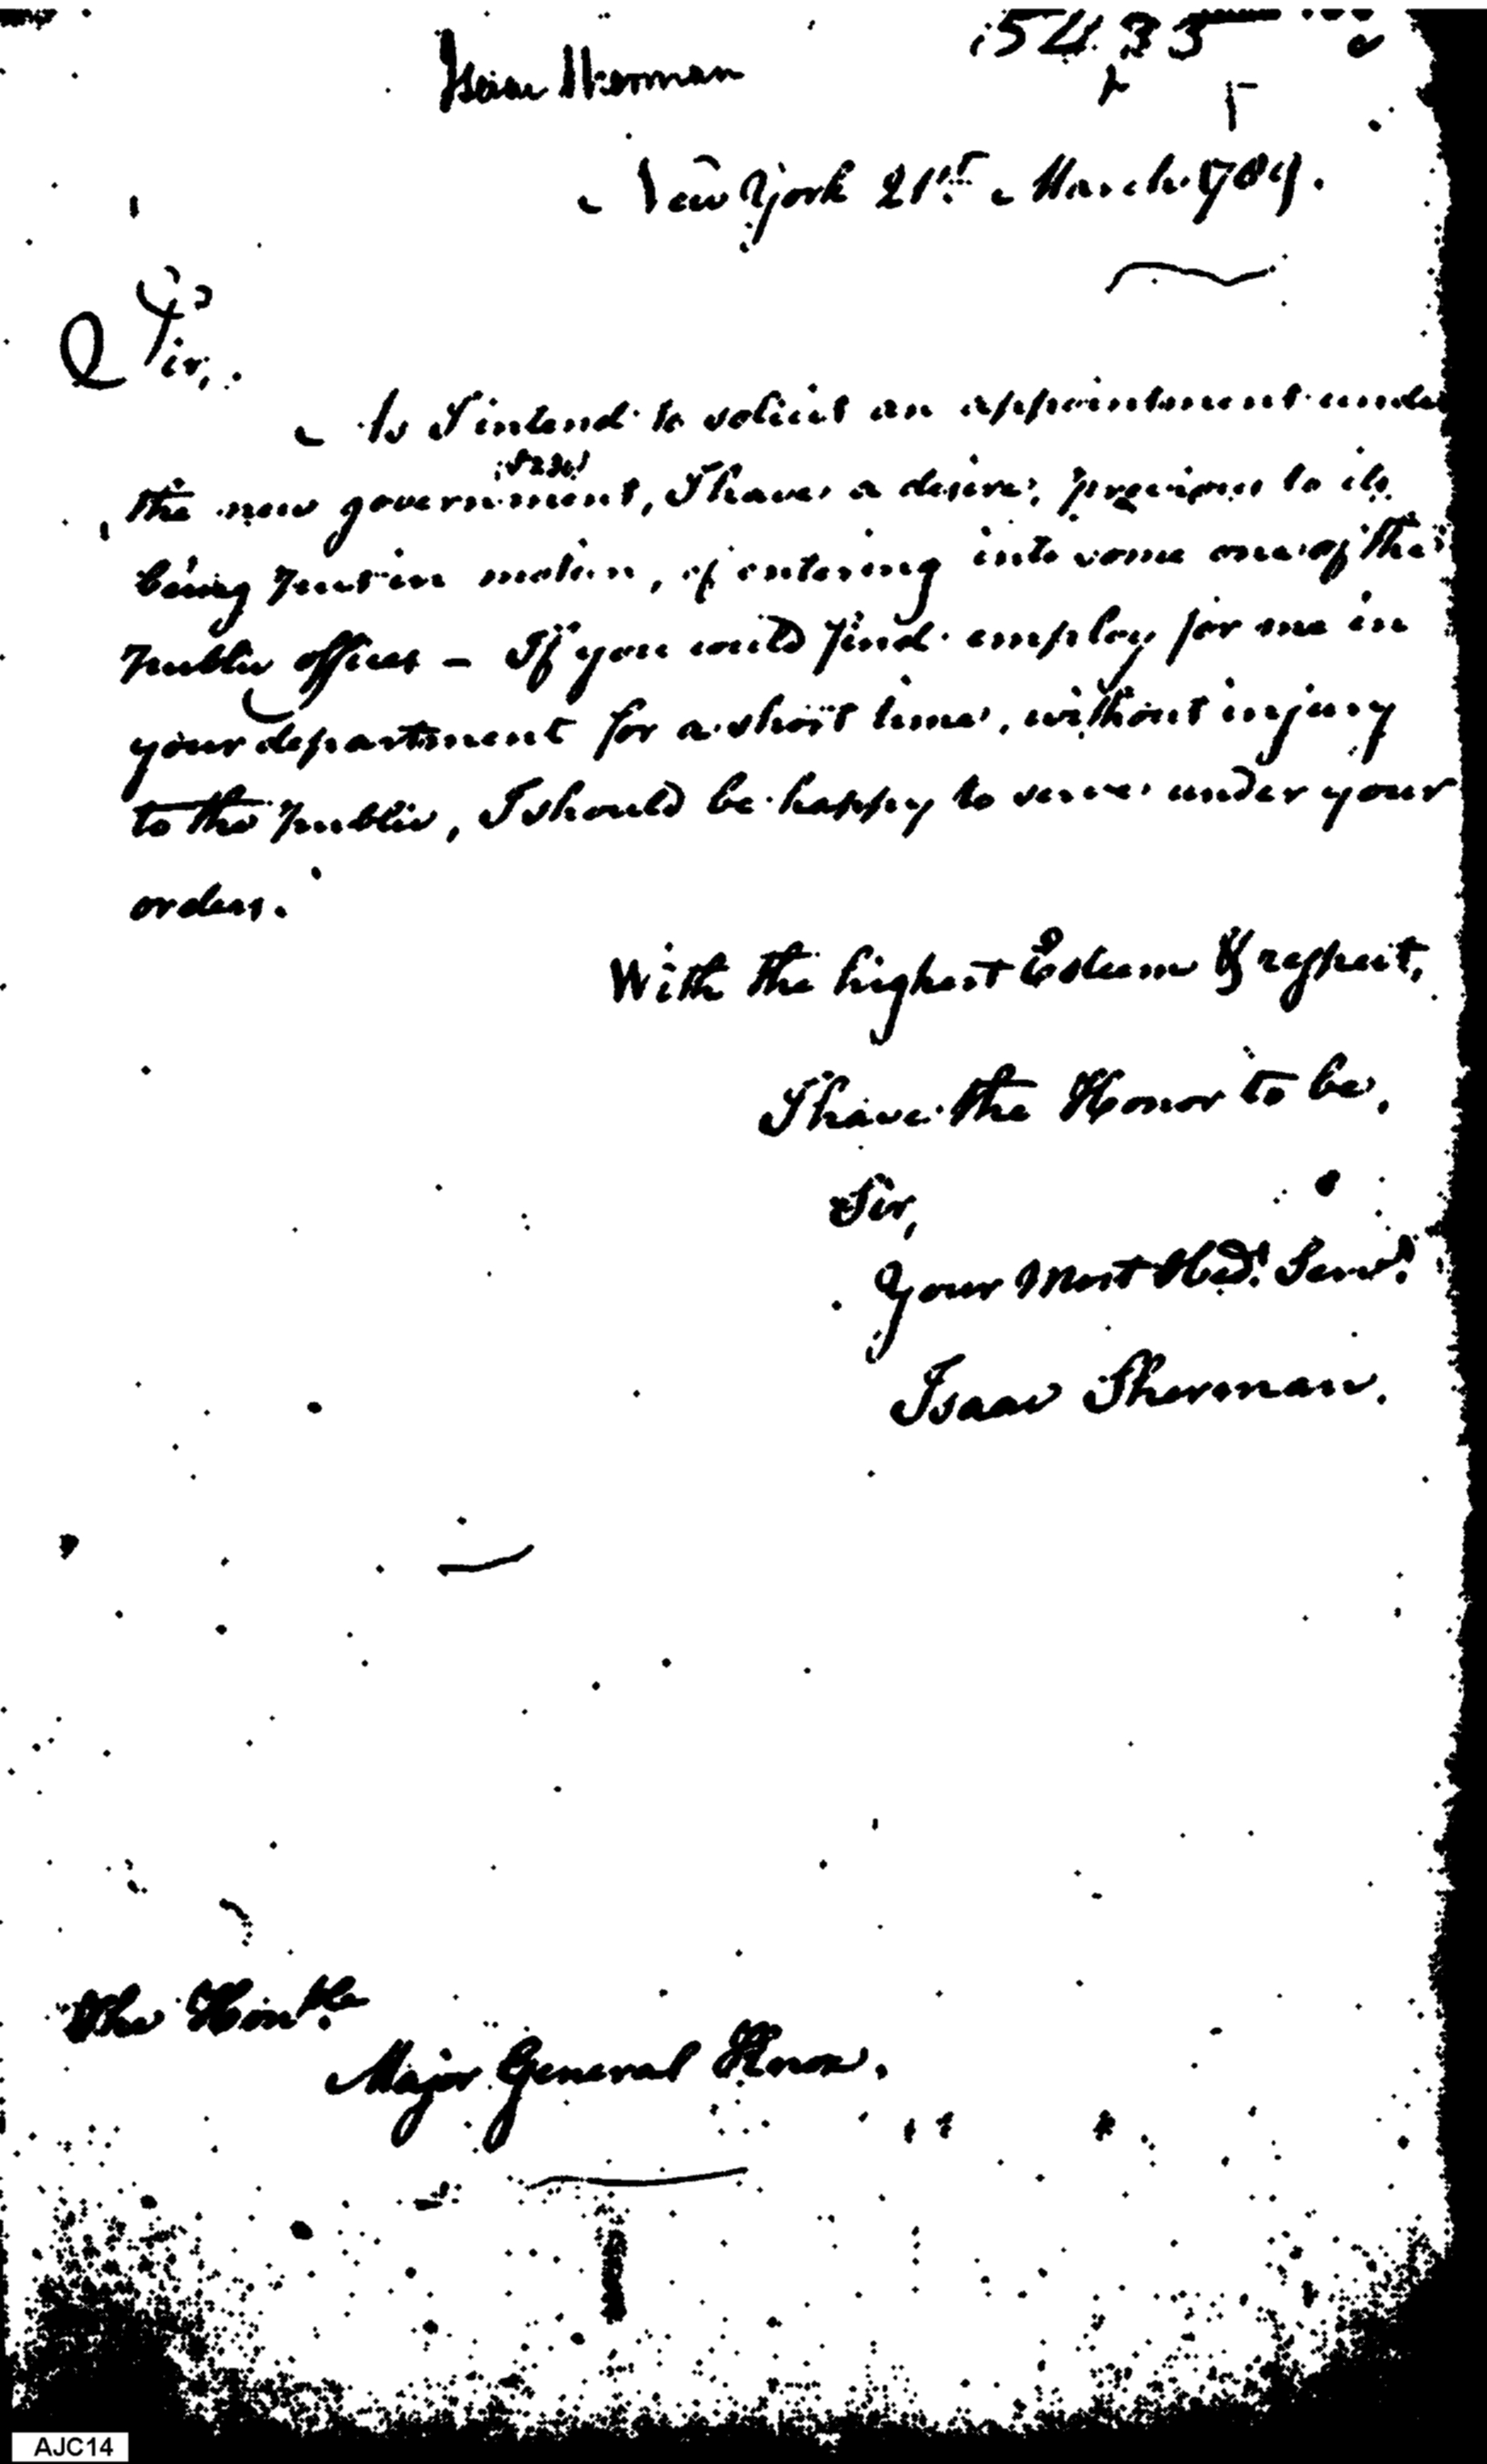 5435
Isaac Sherman
New York 21st. March 1789.
Sir,
As I intend to solicit an appointment under
the new government, I have a desire, previous to its
being put in motion, of entering into some one of the
public offices – If you could find employ for me in
your department for a short time, without injury
to the public, I should be happy to serve under your
orders.
With the highest Esteem & respect,
I have the Honor to be,
Sir,
Your Most Obedt. Servt.
Isaac Sherman.
The Honble.
Major General Knox.
AJC14